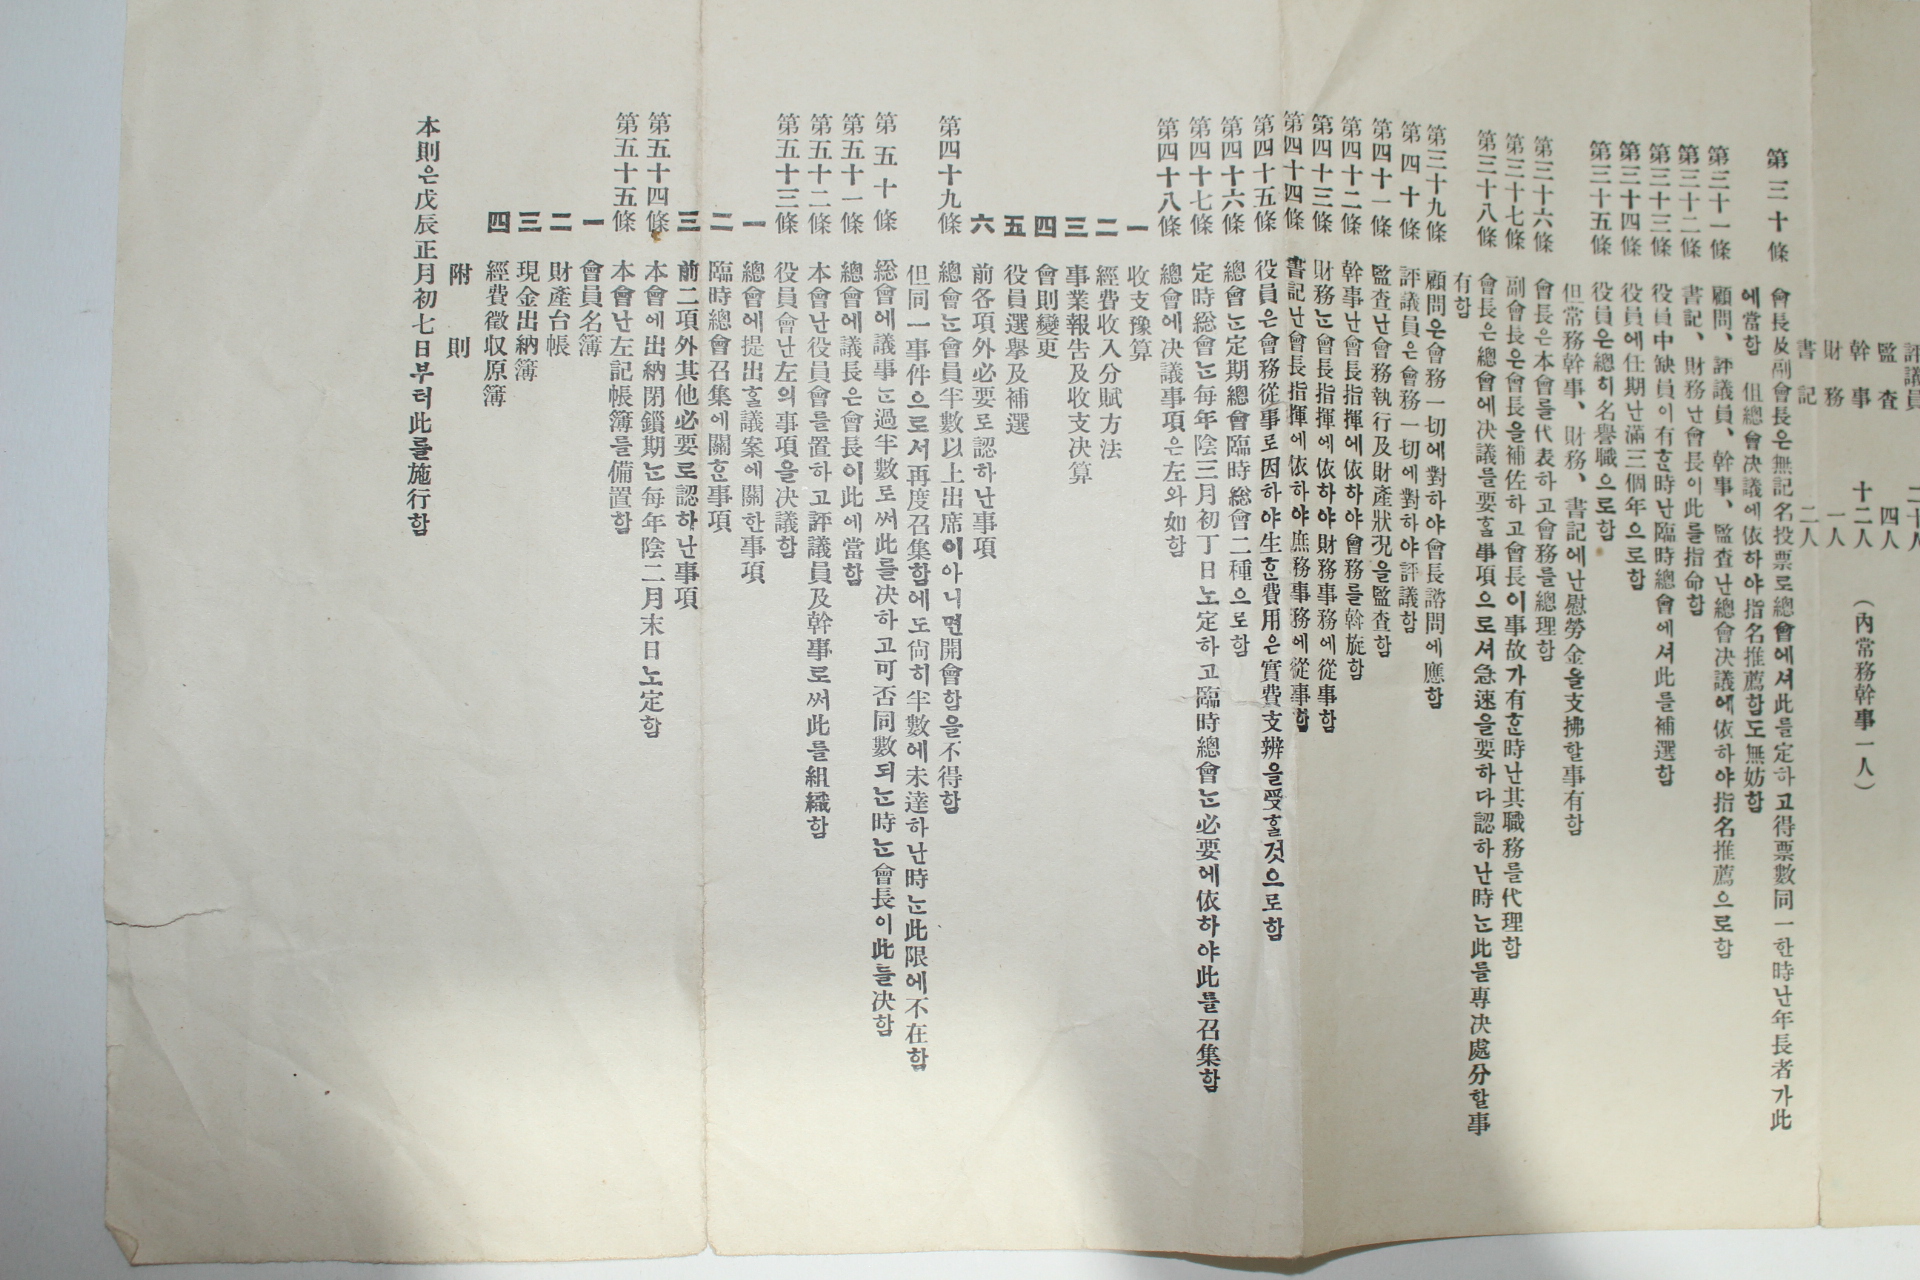 監査 四人
幹事 十二人 (內常務幹事一人)
財務 一人
書記 二人
第三十條 會長及副會長은無記名投票로總會에셔此를定하고得票數同一한時난年長者가此
에當함 但總會决議에依하야指名推薦함도無妨함
第三十一條 顧問、評議員、幹事、監査난總會决議에依하야指名推薦으로함
第三十二條 書記、財務난會長이此를指命함
第三十三條 役員中缺員이有한時난臨時總會에셔此를補選함
第三十四條 役員에任期난滿三個年으로함
第三十五條 役員은總히名譽職으로함
但常務幹事、財務、書記에난慰勞金을支拂할事有함
第三十六條 會長은本會를代表하고會務를總理함
第三十七條 副會長은會長을補佐하고會長이事故가有한時난其職務를代理함
第三十八條 會長은總會에决議를要할事項으로셔急速을要하다認하난時는此를專决處分할事
有함
第三十九條 顧問은會務一切에對하야會長諮問에應함
第四十條 評議員은會務一切에對하야評議함
第四十一條 監査난會務執行及財產狀況을監査함
第四十二條 幹事난會長指揮에依하야會務를斡旋함
第四十三條 財務는會長指揮에依하야財務事務에從事함
第四十四條 書記난會長指揮에依하야庶務事務에從事함
第四十五條 役員은會務從事로因하야生한費用은實費支辨을受할것으로함
第四十六條 總會는定期總會臨時総會二種으로함
第四十七條 定時総會는每年陰三月初丁日노定하고臨時總會는必要에依하야此를召集함
第四十八條 總會에决議事項은左와如함
一 收支豫算
二 經費收入分賦方法
三 事業報告及收支决算
四 會則變更
五 役員選擧及補選
六 前各項外必要로認하난事項
第四十九條 總會는會員半數以上出席이아니면開會함을不得함
但同一事件으로서再度召集함에도尙히半數에未達하난時는此限에不在함
第五十條 総會에議事는過半數로써此를决하고可否同數되는時는會長이此를决함
第五十一條 總會에議長은會長이此에當함
第五十二條 本會난役員會를置하고評議員及幹事로써此를組織함
第五十三條 役員會난左의事項을决議함
一 總會에提出할議案에關한事項
二 臨時總會召集에關한事項
三 前二項外其他必要로認하난事項
第五十四條 本會에出納閉鎖期는每年陰二月末日노定함
第五十五條 本會난左記帳簿를備置함
一 會員名簿
二 財產台帳
三 現金出納簿
四 經費徵収原簿
附則
本則은戊辰正月初七日부터此를施行함